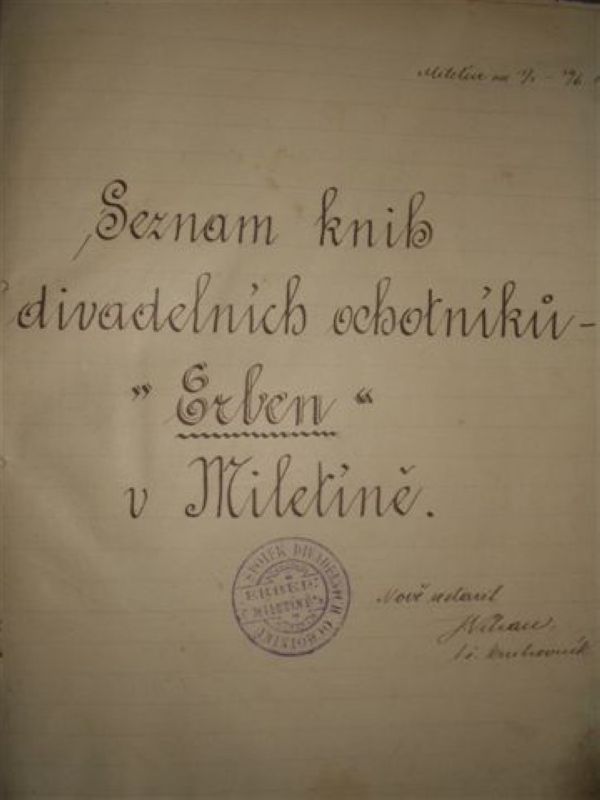 Miletín
Seznam knih
divadelních ochotníků -
„ Erben “
v Miletíně.
SPOLEK DIVADELNÍCH OCHOTNÍKŮ
ERBEN
V MILETÍNĚ
Nově sestavil
t. č. knihovník